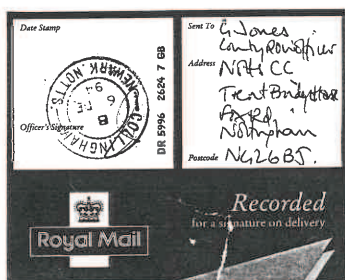 Date Stamp
COLLINGHAM
B
6 DE
94
NEWARK, NOTTS.
Officer's Signature
DR 5996 2624 7 GB
Sent To G Jones
County
Address Notts CC
Trent Bridge House
Fox Rd,
Nottingham
Postcode NG2 6BJ.
Royal Mail
Recorded
for a signature on delivery